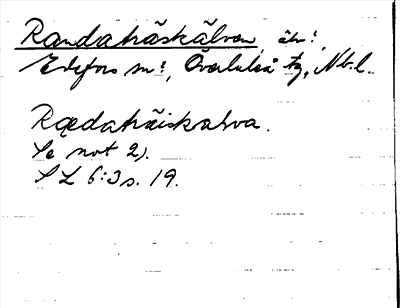 Randaträskälven, älv:,
Edefors sn:, Överluleå tg, Nb.l.
Rædaträiskælva.
Se not 2).
SL 6:3 s. 19.